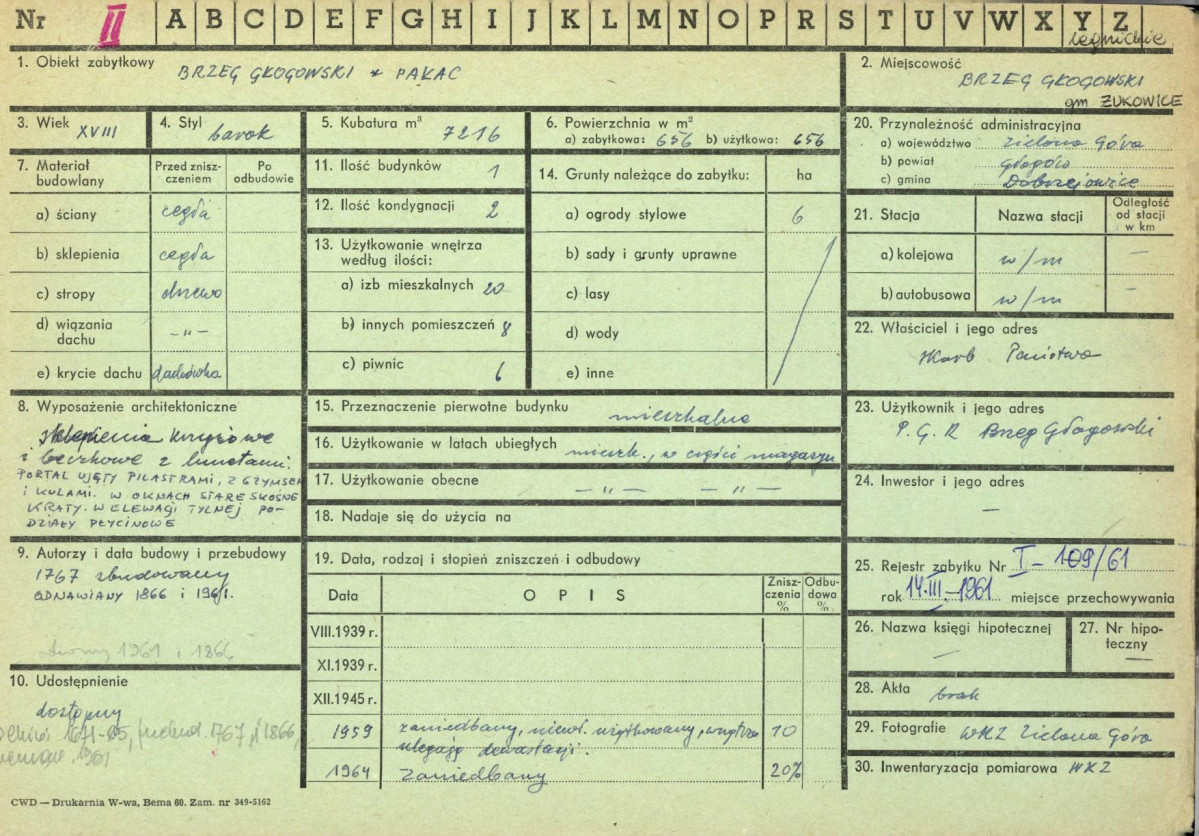 Nr II A B C D E F G H I J K L M N O P R S T U V W X Y Z
legnickie
1. Obiekt zabytkowy BRZEG GŁOGOWSKI * PAŁAC
2. Miejscowość
BRZEG GŁOGOWSKI
gm ŻUKOWICE
3. Wiek XVIII
4. Styl barok
5. Kubatura m³ 7216
6. Powierzchnia w m²
a) zabytkowa: 656 b) użytkowa: 656
7. Materiał budowlany
Przed zniszczeniem
Po odbudowie
a) ściany cegła
b) sklepienia cegła
c) stropy drzewo
d) wiązania dachu -"-
e) krycie dachu dachówka
8. Wyposażenie architektoniczne
sklepienia krzyżowe
i beczkowe z lunetami.
PORTAL UJĘTY PILASTRAMI, Z GZYMSEM
I KULAMI. W OKNACH STARE SKOŚNE
KRATY. W ELEWACJI TYLNEJ PO-
DZIAŁY PŁYCINOWE
9. Autorzy i data budowy i przebudowy
1767 zbudowany
ODNAWIANY 1866 i 1961.
1961 i 1866
10. Udostępnienie
dostępny
1767, 1866,
1961
CWD — Drukarnia W-wa, Bema 60. Zam. nr 349-5162
11. Ilość budynków 1
12. Ilość kondygnacji 2
13. Użytkowanie wnętrza
według ilości:
a) izb mieszkalnych 20
b) innych pomieszczeń 8
c) piwnic 6
14. Grunty należące do zabytku: ha
a) ogrody stylowe 6
b) sady i grunty uprawne
c) lasy
d) wody
e) inne
15. Przeznaczenie pierwotne budynku mieszkalne
16. Użytkowanie w latach ubiegłych mieszk., w części magazyn
17. Użytkowanie obecne -"- -"-
18. Nadaje się do użycia na
19. Data, rodzaj i stopień zniszczeń i odbudowy
Data OPIS Zniszczenia % Odbudowa %
VIII.1939 r.
XI.1939 r.
XII.1945 r.
1959 zaniedbany, niewł. użytkowany, wnętrza 10
ulegają dewastacji.
1964 zaniedbany 20%
20. Przynależność administracyjna
a) województwo Zielona Góra
b) powiat Głogów
c) gmina Dobrzejowice
21. Stacja Nazwa stacji Odległość od stacji w km
a) kolejowa w/m —
b) autobusowa w/m —
22. Właściciel i jego adres
Skarb Państwa
23. Użytkownik i jego adres
P.G.R Brzeg Głogowski
24. Inwestor i jego adres
—
25. Rejestr zabytku Nr I-109/61
rok 14.III.-1961 miejsce przechowywania
26. Nazwa księgi hipotecznej
—
27. Nr hipoteczny
—
28. Akta brak
29. Fotografie WKZ Zielona Góra
30. Inwentaryzacja pomiarowa WKZ